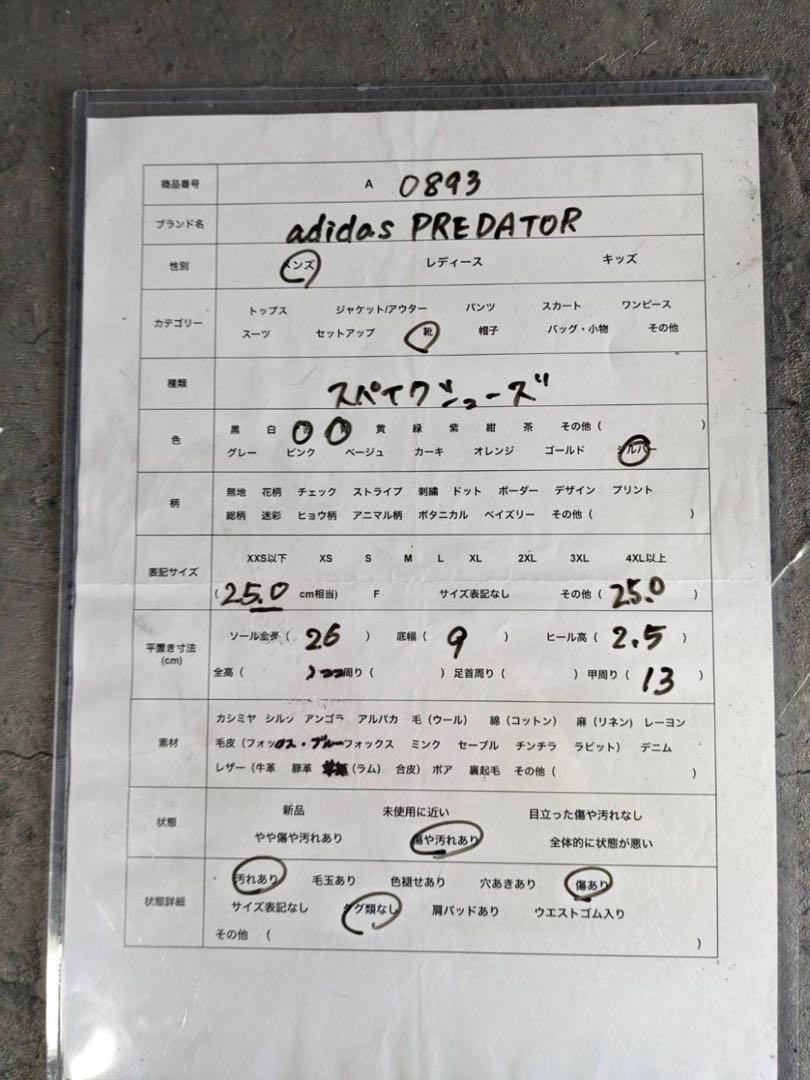 商品番号 A 0893
ブランド名 adidas PREDATOR
性別 メンズ レディース キッズ
カテゴリー
トップス ジャケット/アウター パンツ スカート ワンピース
スーツ セットアップ 靴 帽子 バッグ・小物 その他
種類 スパイクシューズ
色
黒 白 赤 青 黄 緑 紫 紺 茶 その他 ( )
グレー ピンク ベージュ カーキ オレンジ ゴールド シルバー
柄
無地 花柄 チェック ストライプ 刺繍 ドット ボーダー デザイン プリント
総柄 迷彩 ヒョウ柄 アニマル柄 ボタニカル ペイズリー その他 ( )
表記サイズ
XXS以下 XS S M L XL 2XL 3XL 4XL以上
( 25.0 cm相当) F サイズ表記なし その他 ( 25.0 )
平置き寸法
(cm)
ソール全長 ( 26 ) 底幅 ( 9 ) ヒール高 ( 2.5 )
全高 ( ) 周り ( ) 足首周り ( ) 甲周り ( 13 )
素材
カシミヤ シルク アンゴラ アルパカ 毛 (ウール) 綿 (コットン) 麻 (リネン) レーヨン
毛皮 (フォックス・ブルーフォックス ミンク セーブル チンチラ ラビット) デニム
レザー (牛革 豚革 (ラム) 合皮) ボア 裏起毛 その他 ( )
状態
新品 未使用に近い 目立った傷や汚れなし
やや傷や汚れあり 傷や汚れあり 全体的に状態が悪い
状態詳細
汚れあり 毛玉あり 色褪せあり 穴あきあり 傷あり
サイズ表記なし タグ類なし 肩パッドあり ウエストゴム入り
その他 ( )